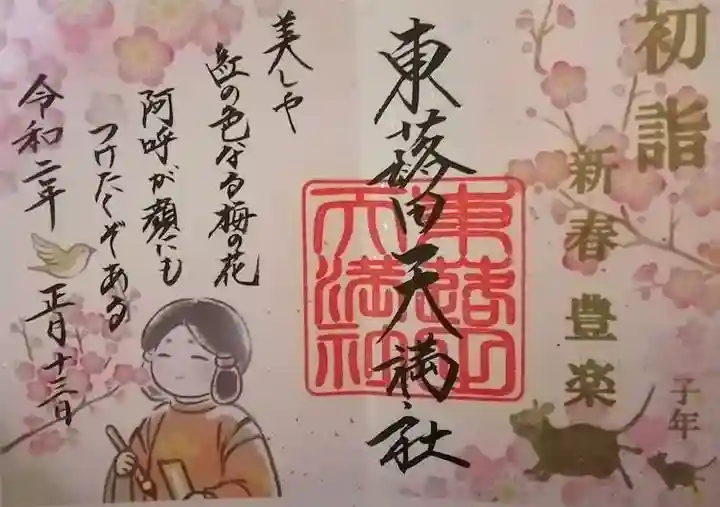 初詣
新春豊楽
子年
東落合天満社
東落合天満社
美しや
紅の色なる梅の花
阿呼が顔にも
つけたくぞある
令和二年
正月十三日